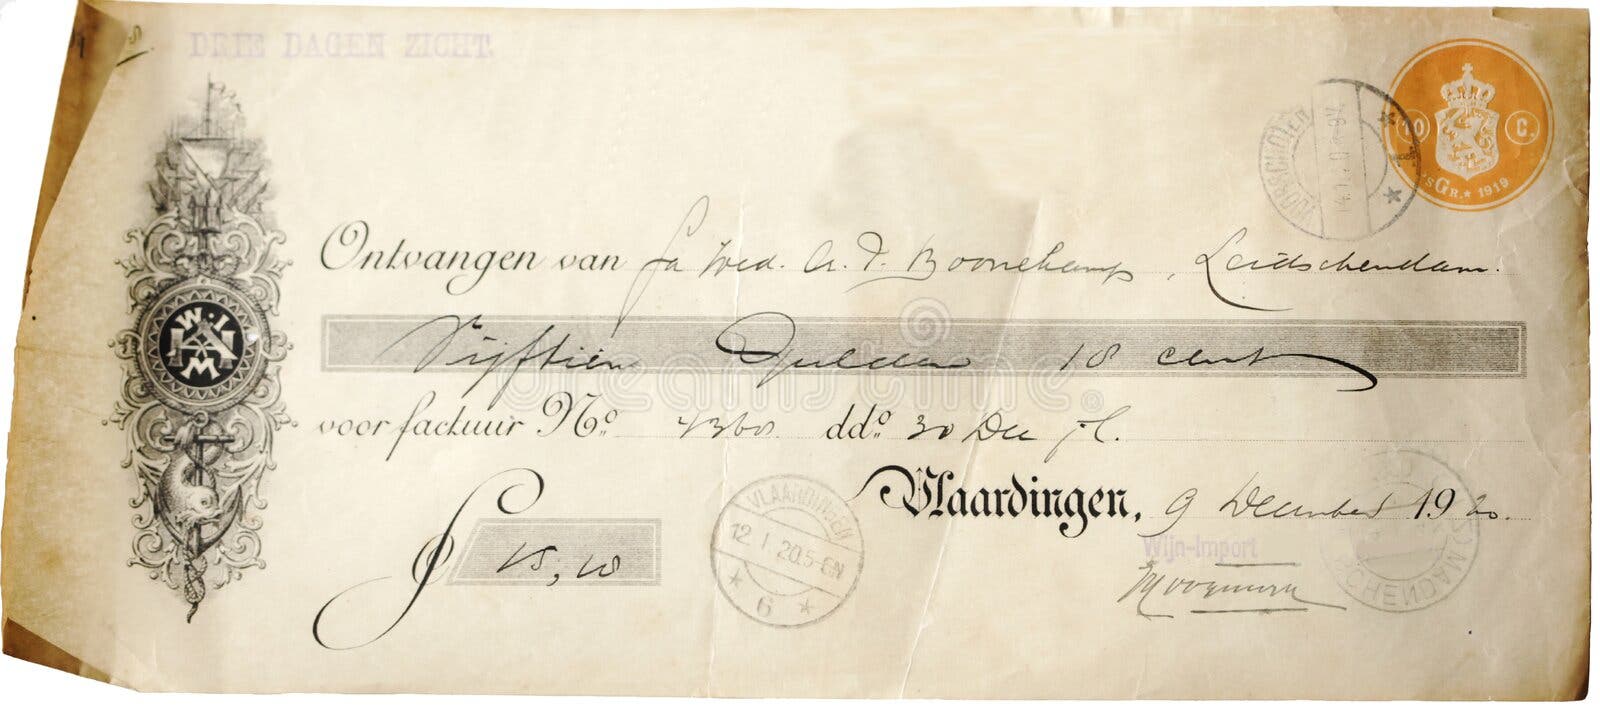 DRIE DAGEN ZICHT.
10 C.
GR. * 1919.
W. I.
M
Ontvangen van fa Wed. A. T. Boonekamp, Leidschendam.
Vijftien Gulden 18 cent
voor factuur No. 4360. ddo. 30 Dec jl.
Vlaardingen, 9 December 1920.
Wijn-Import
f 15,18
VLAARDINGEN
12.1.20.5-6N
6
dreamstime